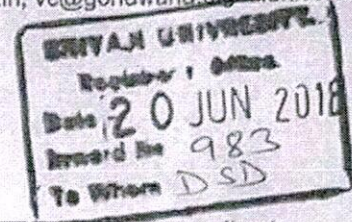 vc@gondwana.
UNIVERSITY.
Registrar's Office.
Date 20 JUN 2018
Inward No 983
To Whom DSD